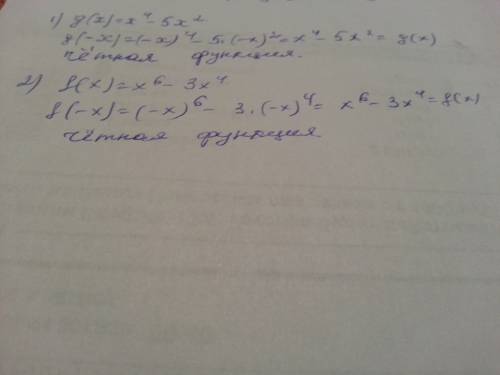 1) f(x)=x⁴-5x²
f(-x)=(-x)⁴-5·(-x)²=x⁴-5x²=f(x)
чётная функция.
2) f(x)=x⁶-3x⁴
f(-x)=(-x)⁶-3·(-x)⁴= x⁶-3x⁴=f(x)
чётная функция